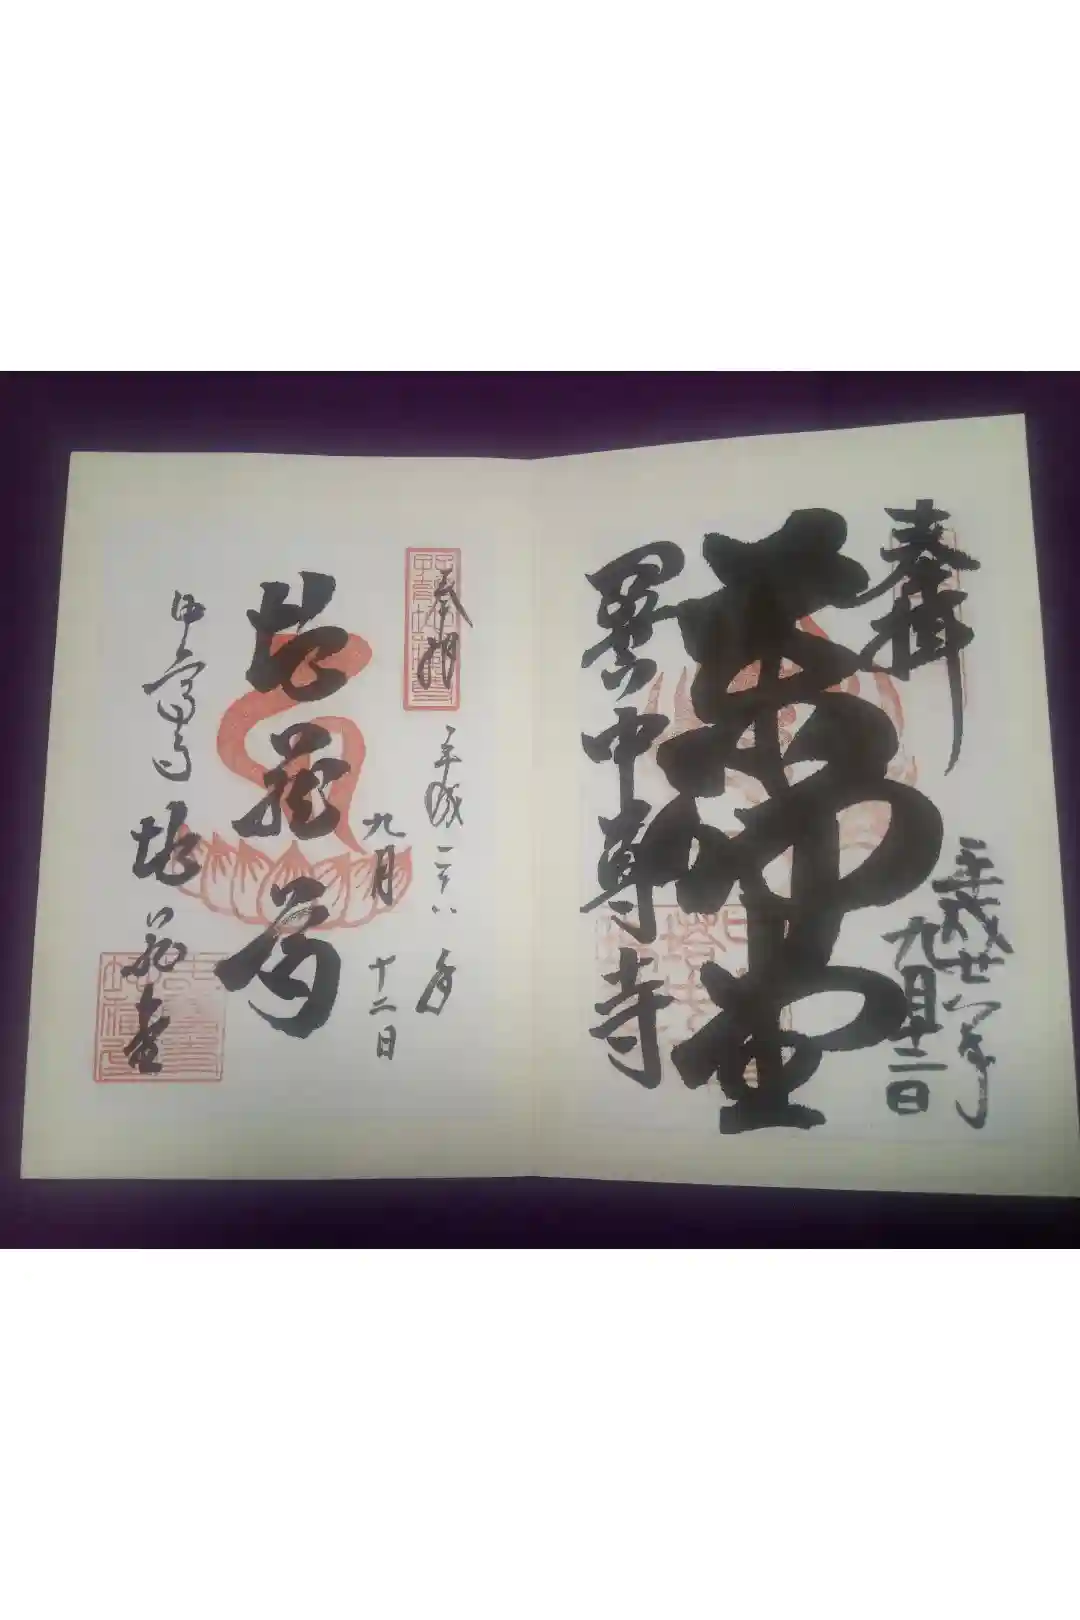 奉拝
平成廿八年
九月十二日
薬師堂
中尊寺
奉拝
平成二十八年
九月十二日
地蔵尊
中尊寺 地蔵堂